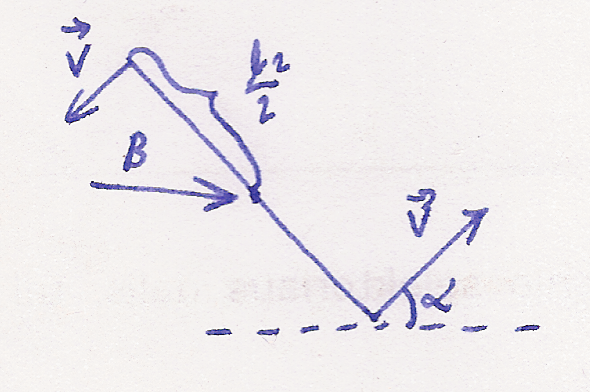 V
l2
2
B
V
α